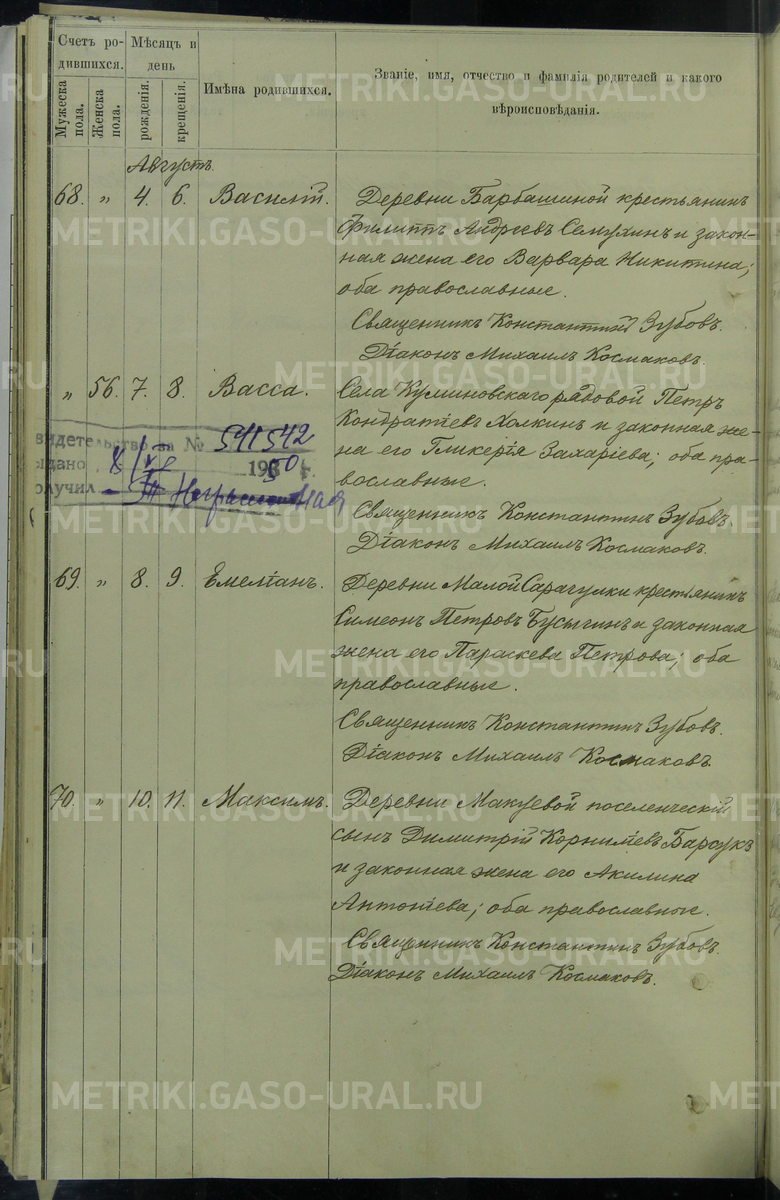 Счетъ ро-
дившихся.
Мѣсяцъ и
день
Имѣна родившихся.
Званіе, имя, отчество и фамилія родителей и какого
вѣроисповѣданія.
Мужеска
пола.
Женска
пола.
рожденія.
крещенія.
Августъ.
68. „ 4. 6. Василій. Деревни Барбашиной крестьянинъ
Филиппъ Андреевъ Семухинъ и закон-
ная жена его Варвара Никитина;
оба православные.
Священникъ Константинъ Зубовъ.
Діаконъ Михаилъ Космаковъ.
„ 56. 7. 8. Васса. Села Куминовскаго рядовой Петръ
Кондратіевъ Холкинъ и законная же-
на его Гликерія Захаріева; оба пра-
вославные.
видетельство за № 541542
ыдано 195
олучил
Священникъ Константинъ Зубовъ.
Діаконъ Михаилъ Космаковъ.
69. „ 8. 9. Емеліанъ. Деревни Малой Сарагулки крестьянинъ
Симеонъ Петровъ Бусыгинъ и законная
жена его Параскева Петрова; оба
православные.
Священникъ Константинъ Зубовъ.
Діаконъ Михаилъ Космаковъ.
70. „ 10. 11. Максимъ. Деревни Макуевой поселенческій
сынъ Димитрій Корниліевъ Барсукъ
и законная жена его Акилина
Антоніева; оба православные.
Священникъ Константинъ Зубовъ.
Діаконъ Михаилъ Космаковъ.
METRIKI.GASO-URAL.RU